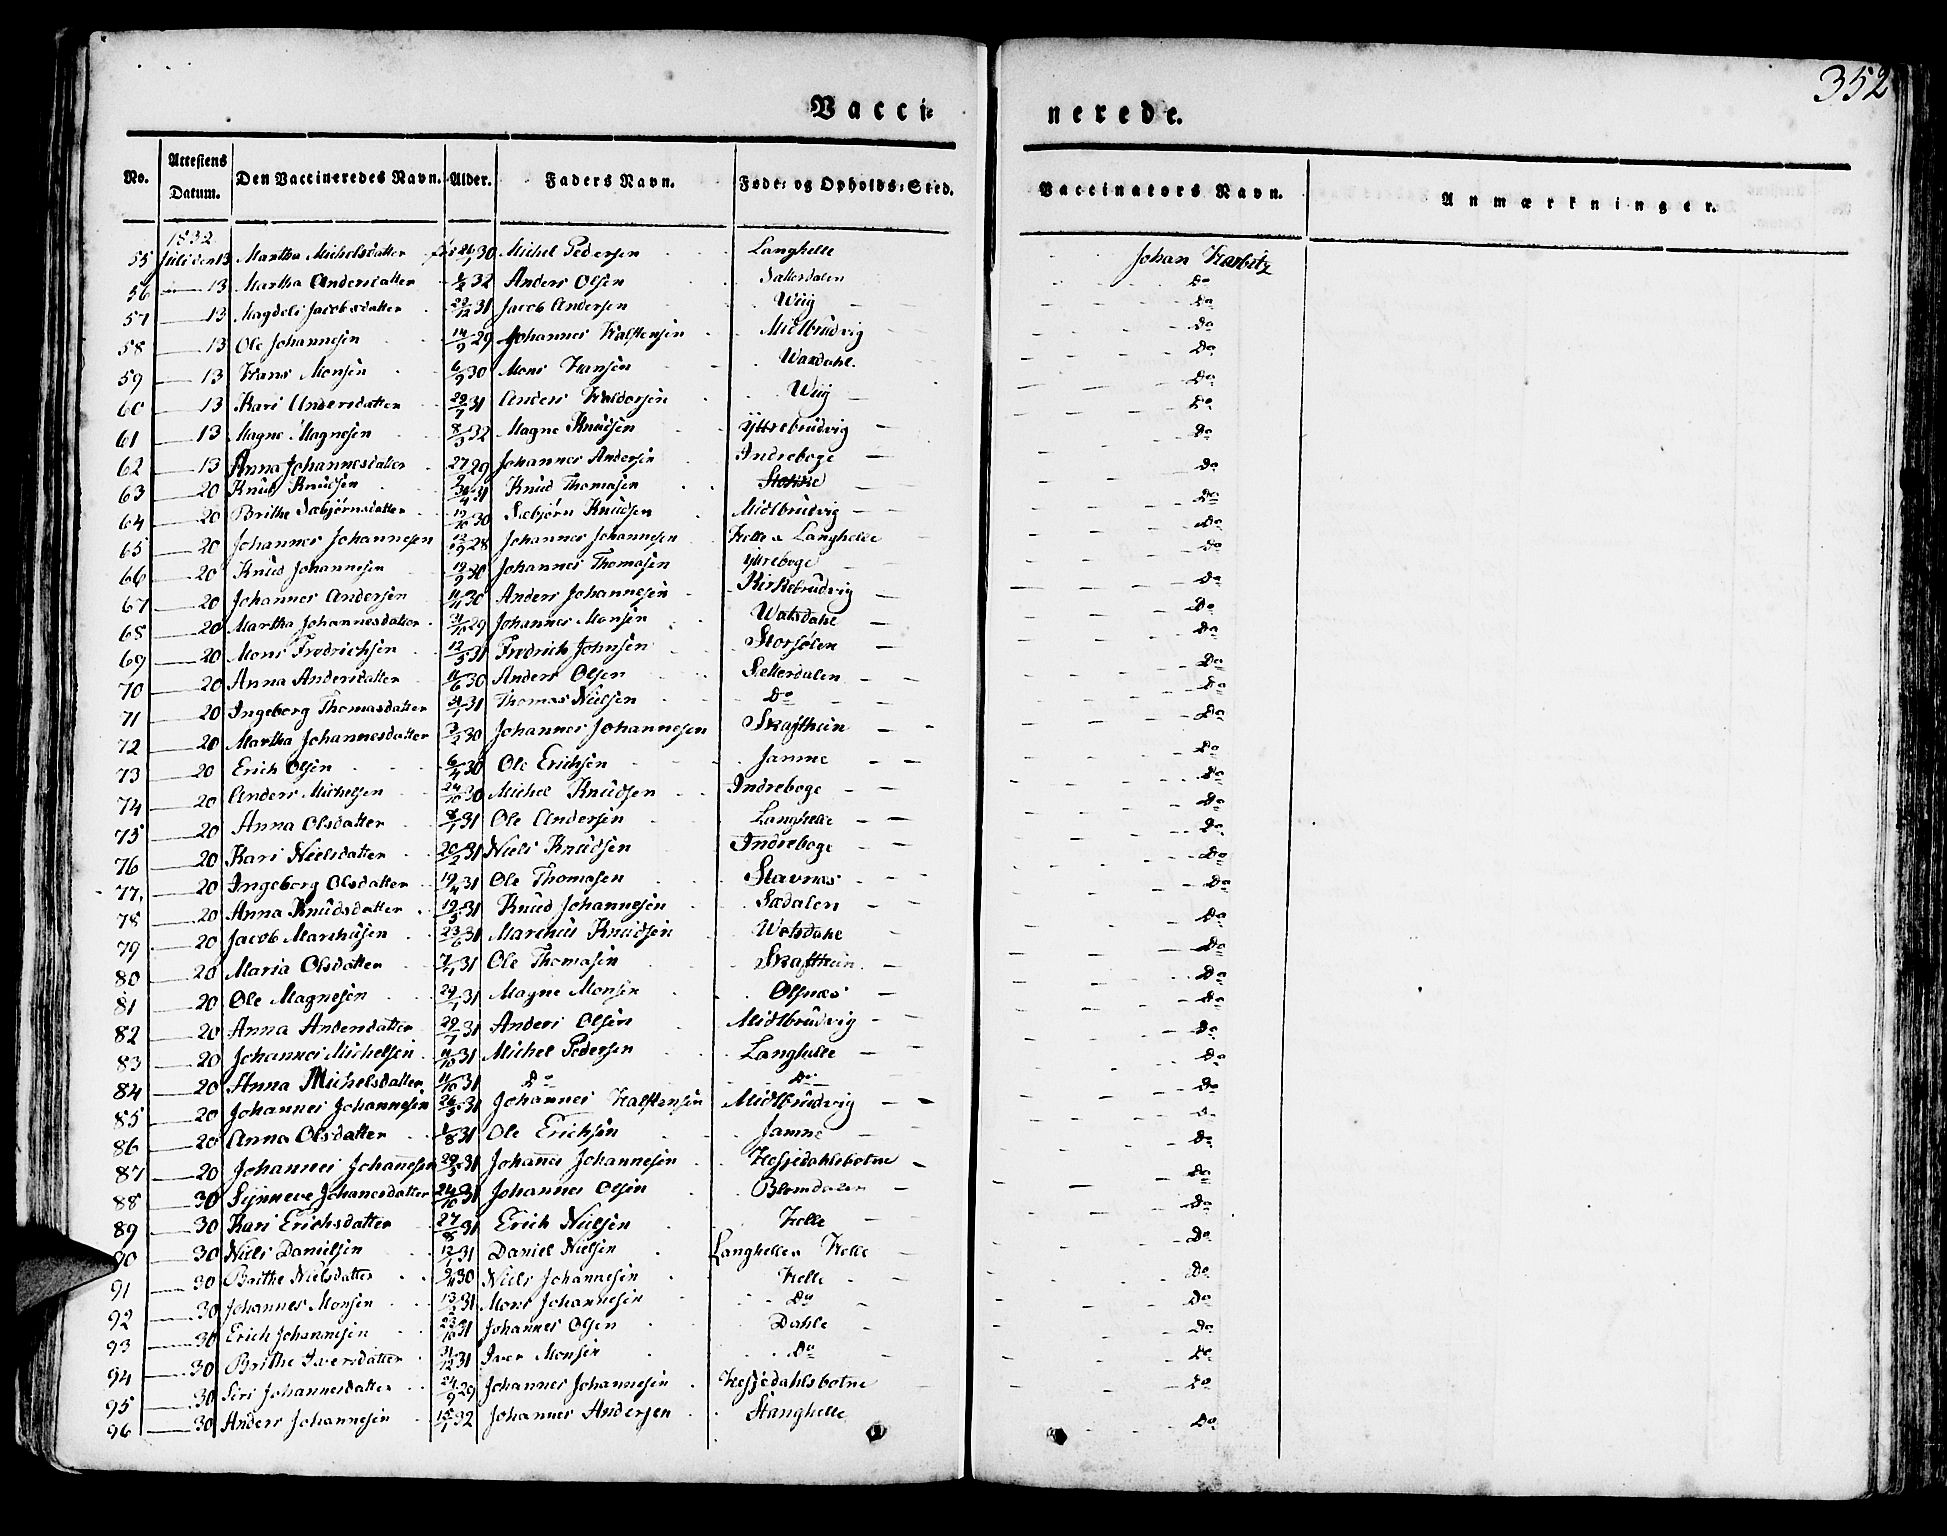 352
Vacci= nerede.
No. Attestens Datum. Den Vaccineredes Navn. Alder. Faders Navn. Føde= og Opholds=Sted. Vaccinators Navn. Anmærkninger.
1832
55 Juli den 13 Martha Michelsdatter 30 Michel Pedersen Langhelle Johan
56 — 13 Martha Andersdatter 32 Anders Olsen Sættersdalen Do
57 — 13 Magdeli Jacobsdatter 29/12 31 Jacob Andersen Wiig Do
58 — 13 Ole Johannesen 14/9 29 Johannes Halstensen Midtbrudvig Do
59 — 13 Hans Monsen 6/9 30 Mons Hansen Do
60 — 13 Kari Andersdatter 29/7 31 Anders Haldorsen Wiig Do
61 — 13 Magne Magnesen 8/3 32 Magne Knudsen Yttrebrudvig Do
62 — 13 Anna Johannesdatter 29 Johannes Andersen Indreboge Do
63 — 20 Knud Knudsen 31 Knud Thomasen Do
64 — 20 Brithe Sæbjørnsdatter 30 Sæbjørn Knudsen Midtbrudvig Do
65 — 20 Johannes Johannesen 12/9 28 Johannes Johannesen Helle a Langhelle Do
66 — 20 Knud Johannesen 30 Johannes Thomasen Yttreboge Do
67 — 20 Johannes Andersen 30 Anders Johannesen Kirkebrudvig Do
68 — 20 Martha Johannesdatter 31/10 29 Johannes Monsen Watsdahl Do
69 — 20 Mons Fredrichsen 12/5 31 Fredrich Johnsen Storsølen Do
70 — 20 Anna Andersdatter 11/6 30 Anders Olsen Sættersdalen Do
71 — 20 Ingeborg Thomasdatter 31 Thomas Nielsen Do Do
72 — 20 Martha Johannesdatter 3/2 30 Johannes Johannesen Skafthein Do
73 — 20 Erich Olsen 6/4 30 Ole Erichsen Jamne Do
74 — 20 Anders Michelsen 24/10 30 Michel Knudsen Indreboge Do
75 — 20 Anna Olsdatter 8/1 31 Ole Andersen Langhelle Do
76 — 20 Kari Nielsdatter 20/2 31 Niels Knudsen Indreboge Do
77. — 20 Ingeborg Olsdatter 19/4 31 Ole Thomasen Stavnæs Do
78 — 20 Anna Knudsdatter 19/5 31 Knud Johannesen Sædalen Do
79 — 20 Jacob Marchusen 23/6 31 Marchus Knudsen Watsdahl Do
80 — 20 Maria Olsdatter 31 Ole Thomasen Skafthein Do
81 — 20 Ole Magnesen 31 Magne Monsen Olsnæs Do
82 — 20 Anna Andersdatter 29/7 31 Anders Olsen Midtbrudvig Do
83 — 20 Johannes Michelsen 11/10 31 Michel Pedersen Langhelle Do
84 — 20 Anna Michelsdatter 11/10 31 Do Do Do
85 — 20 Johannes Johannesen 26/5 31 Johannes Halstensen Midtbrudvig Do
86 — 20 Anna Olsdatter 31 Ole Erichsen Jamne Do
87 — 20 Johannes Johannesen 29/5 31 Johannes Johannesen Hesjedahlsbotne Do
88 — 30 Synneve Johanesdatter 24/10 31 Johannes Olsen Blomdalen Do
89 — 30 Kari Erichsdatter 27/8 31 Erich Nielsen Helle Do
90 — 30 Niels Danielsen 12/1 31 Daniel Nielsen Langhelle Helle Do
91 — 30 Brithe Nielsdatter 30 Niels Johannesen Helle Do
92 — 30 Johannes Monsen 31 Mons Johannesen Do Do
93 — 30 Erich Johannesen 23/10 31 Johannes Olsen Dahle Do
94 — 30 Brithe Iversdatter 31/12 31 Iver Monsen Do Do
95 — 30 Siri Johannesdatter 24/9 29 Johannes Johannesen Hesjedahlsbotne Do
96 — 30 Anders Johannesen 15/1 32 Johannes Andersen Stanghelle Do